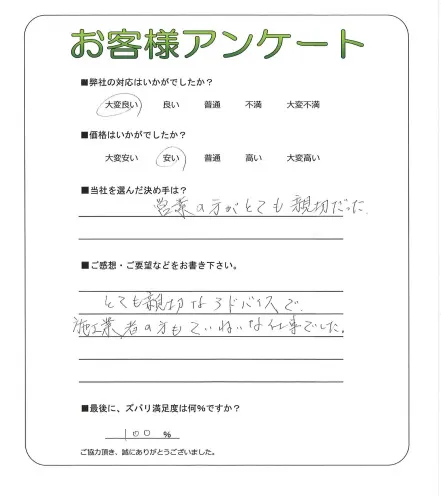 お客様アンケート
■弊社の対応はいかがでしたか？
大変良い 良い 普通 不満 大変不満
■価格はいかがでしたか？
大変安い 安い 普通 高い 大変高い
■当社を選んだ決め手は？
営業の方がとても親切だった
■ご感想・ご要望などをお書き下さい。
とても親切なアドバイスで、
施工業者の方もていねいな仕事でした。
■最後に、ズバリ満足度は何％ですか？
100 ％
ご協力頂き、誠にありがとうございました。